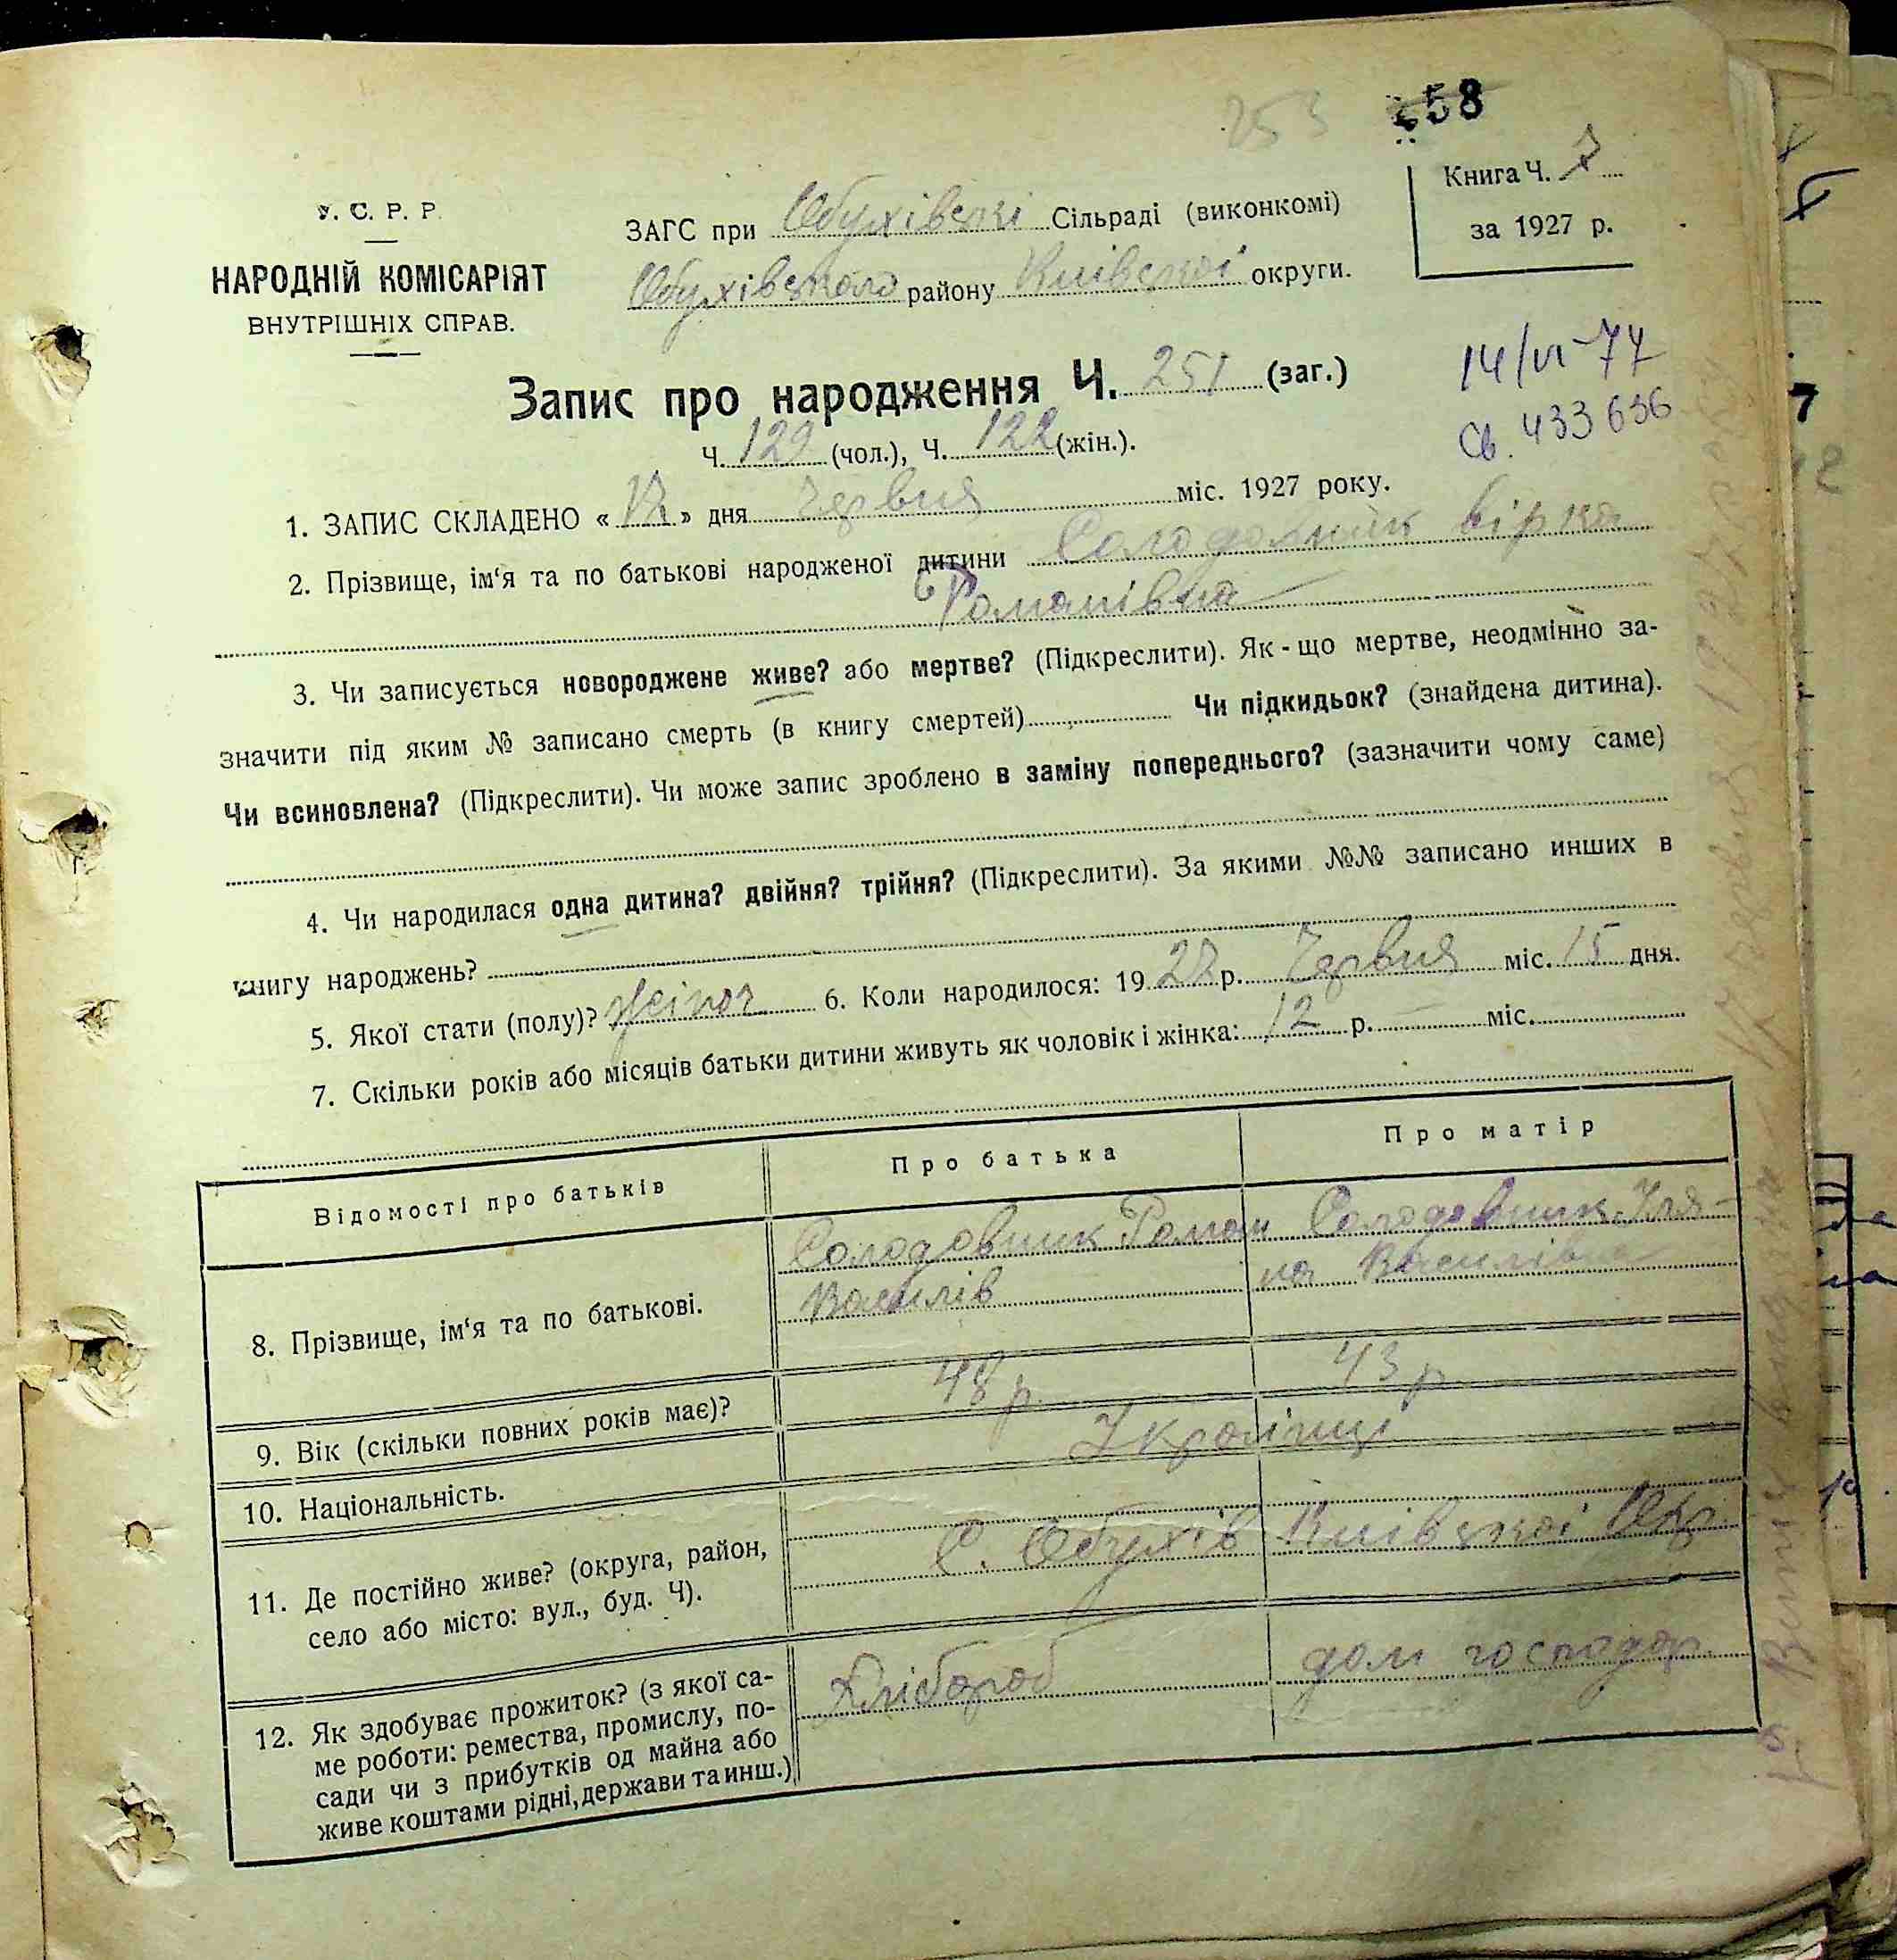 58
253
У. С. Р. Р.
НАРОДНІЙ КОМІСАРІЯТ
ВНУТРІШНІХ СПРАВ.
ЗАГС при Обухівські Сільраді (виконкомі)
Обухівського району Київської округи.
Книга Ч. 7
за 1927 р.
Запис про народження Ч. 251 (заг.)
Ч. 129 (чол.), Ч. 122 (жін.).
14/VI-77
Св. 433636
1. ЗАПИС СКЛАДЕНО « » дня Червня міс. 1927 року.
2. Прізвище, ім‘я та по батькові народженої дитини Солодовник Вірка
Романівна
3. Чи записується новороджене живе? або мертве? (Підкреслити). Як-що мертве, неодмінно за-
значити під яким № записано смерть (в книгу смертей) Чи підкидьок? (знайдена дитина).
Чи всиновлена? (Підкреслити). Чи може запис зроблено в заміну попереднього? (зазначити чому саме)
4. Чи народилася одна дитина? двійня? трійня? (Підкреслити). За якими №№ записано инших в
книгу народжень?
5. Якої стати (полу)? жіноч 6. Коли народилося: 1927 р. Червня міс. 15 дня.
7. Скільки років або місяців батьки дитини живуть як чоловік і жінка: 12 р. — міс.
Відомості про батьків
Про батька
Про матір
8. Прізвище, ім‘я та по батькові.
Солодовник Роман
Василів
Солодовник
на Василівна
9. Вік (скільки повних років має)?
48 р.
43 р.
10. Національність.
Українці
11. Де постійно живе? (округа, район,
село або місто: вул., буд. Ч).
С. Обухів Київської Окр.
12. Як здобуває прожиток? (з якої са-
ме роботи: ремества, промислу, по-
сади чи з прибутків од майна або
живе коштами рідні, держави та инш.)
Хлібороб
дом господар.